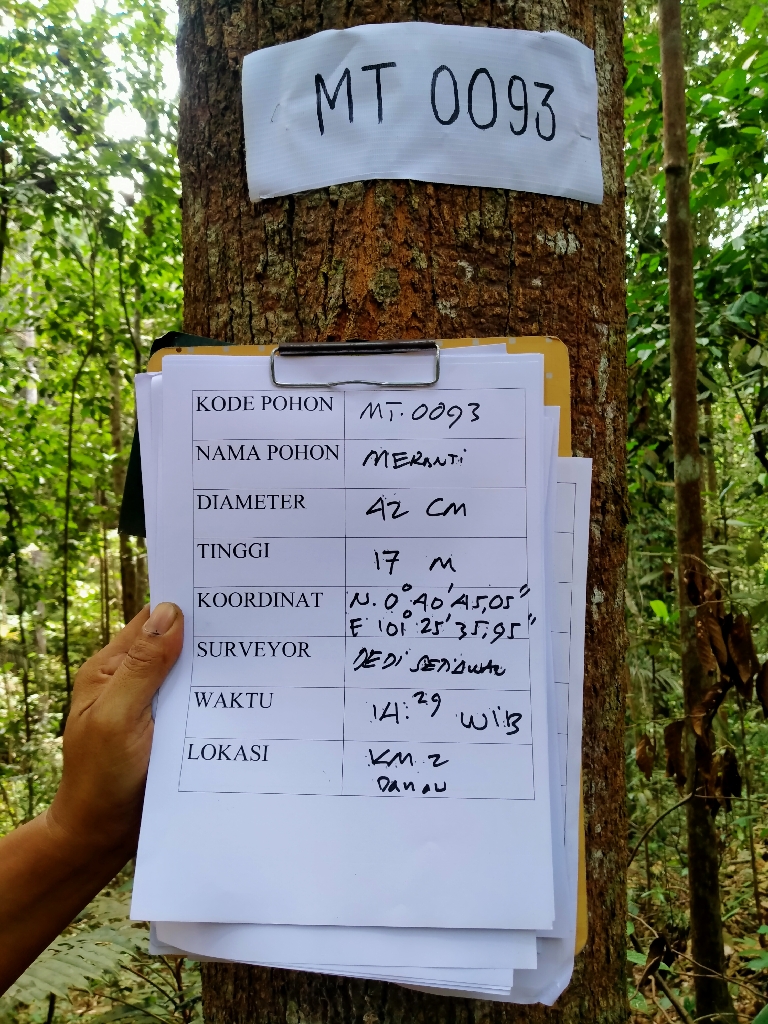 MT 0093
KODE POHON MT.0093
NAMA POHON MERANTI
DIAMETER 42 CM
TINGGI 17 M
KOORDINAT N. 0° 40' 45,05"
E 101° 25' 35,95"
SURVEYOR DEDI SETIAWAN
WAKTU 14:29 WIB
LOKASI KM 2
Danau